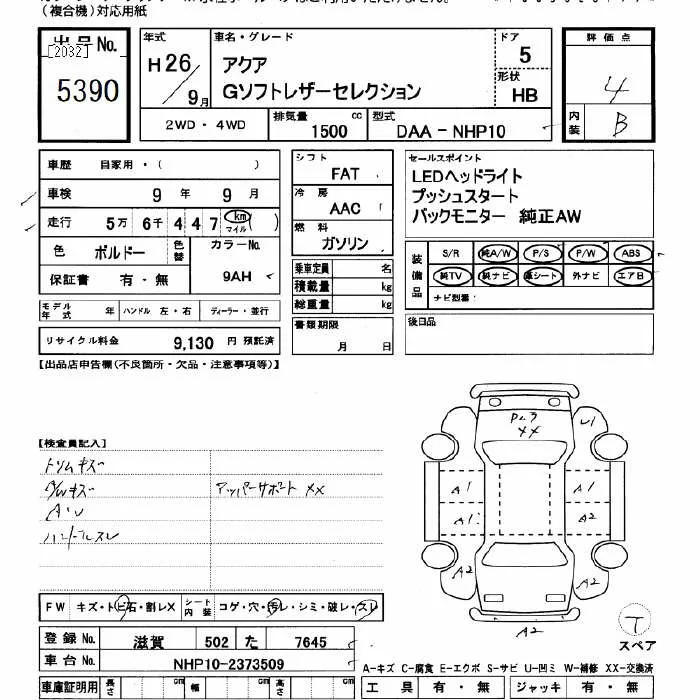 (複合機)対応用紙
出品No.
[2032]
5390
年式
H26/9月
車名・グレード
アクア
Gソフトレザーセレクション
ドア
5
形状
HB
評価点
4
内装
B
2WD・4WD
排気量 1500 cc
型式 DAA-NHP10
車歴 自家用・( )
車検 9年 9月
走行 5万 6千 4 4 7 km マイル ( )
色 ボルドー 色替
カラーNo.
9AH
保証書 有・無
モデル年式 年 ハンドル 左・右 ディーラー・並行
リサイクル料金 9,130 円 預託済
シフト
FAT
冷房
AAC
燃料
ガソリン
乗車定員 名
積載量 kg
総重量 kg
書類期限
月 日
セールスポイント
LEDヘッドライト
プッシュスタート
バックモニター 純正AW
装備品
S/R 純A/W P/S P/W ABS
純TV 純ナビ 革シート 外ナビ エアB
ナビ型番:
後日品
【出品店申告欄(不良箇所・欠品・注意事項等)】
【検査員記入】
トリムキズ
アッパーサポート XX
ハンドルスレ
XX
U1
A1
A1
A1
A2
A2
A2
A2
FW キズ・トビ石・割レX
シート内装 コゲ・穴・汚レ・シミ・破レ・スレ
登録No. 滋賀 502 た 7645
車台No. NHP10-2373509
車庫証明用 長さ cm 幅 cm 高さ cm
T
スペア
A-キズ C-腐食 E-エクボ S-サビ U-凹ミ W-補修 XX-交換済
工具 有・無 ジャッキ 有・無